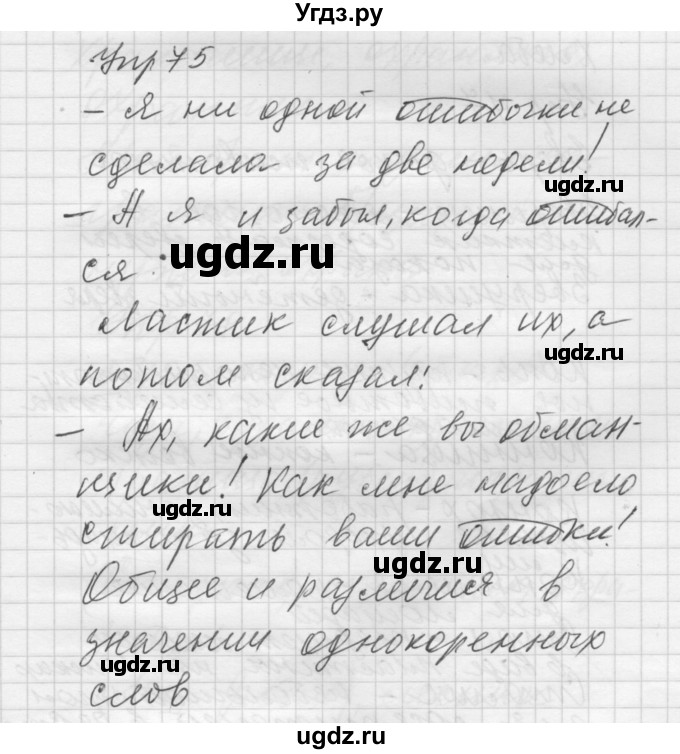 Угдз.ру
Упр 75
– Я ни одной ошибочки не
сделала за две недели!
– А я и забыл, когда ошибал-
ся.
Ластик слушал их, а
потом сказал:
– Ах, какие же вы обман-
щики! Как мне надоело
стирать ваши ошибки!
Общее и различия в
значении однокоренных
слов
ugdz.ru
ugdz.ru
ugdz.ru
ugdz.ru
ugdz.ru
ugdz.ru
ugdz.ru
ugdz.ru